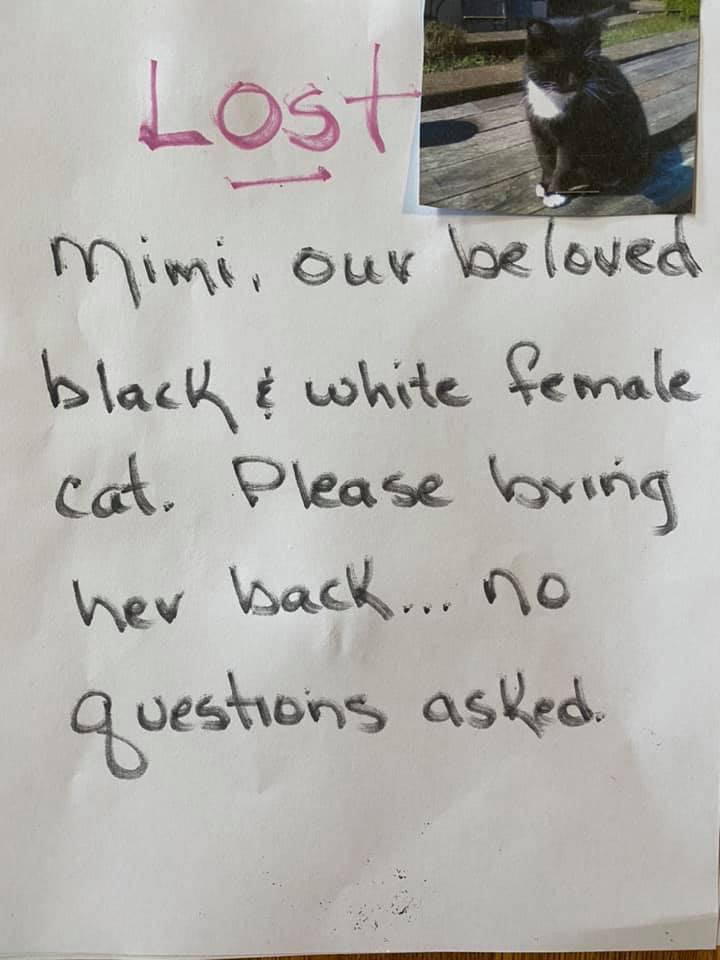 Lost
Mimi, our beloved
black & white female
cat. Please bring
her back... no
questions asked.